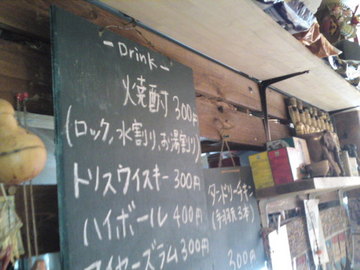 -Drink-
焼酎 300円
(ロック、水割り、お湯割り)
トリスウイスキー 300円
ハイボール 400円
マイヤーズラム 300円
タンドリーチキン
(手羽類 3本)
300円